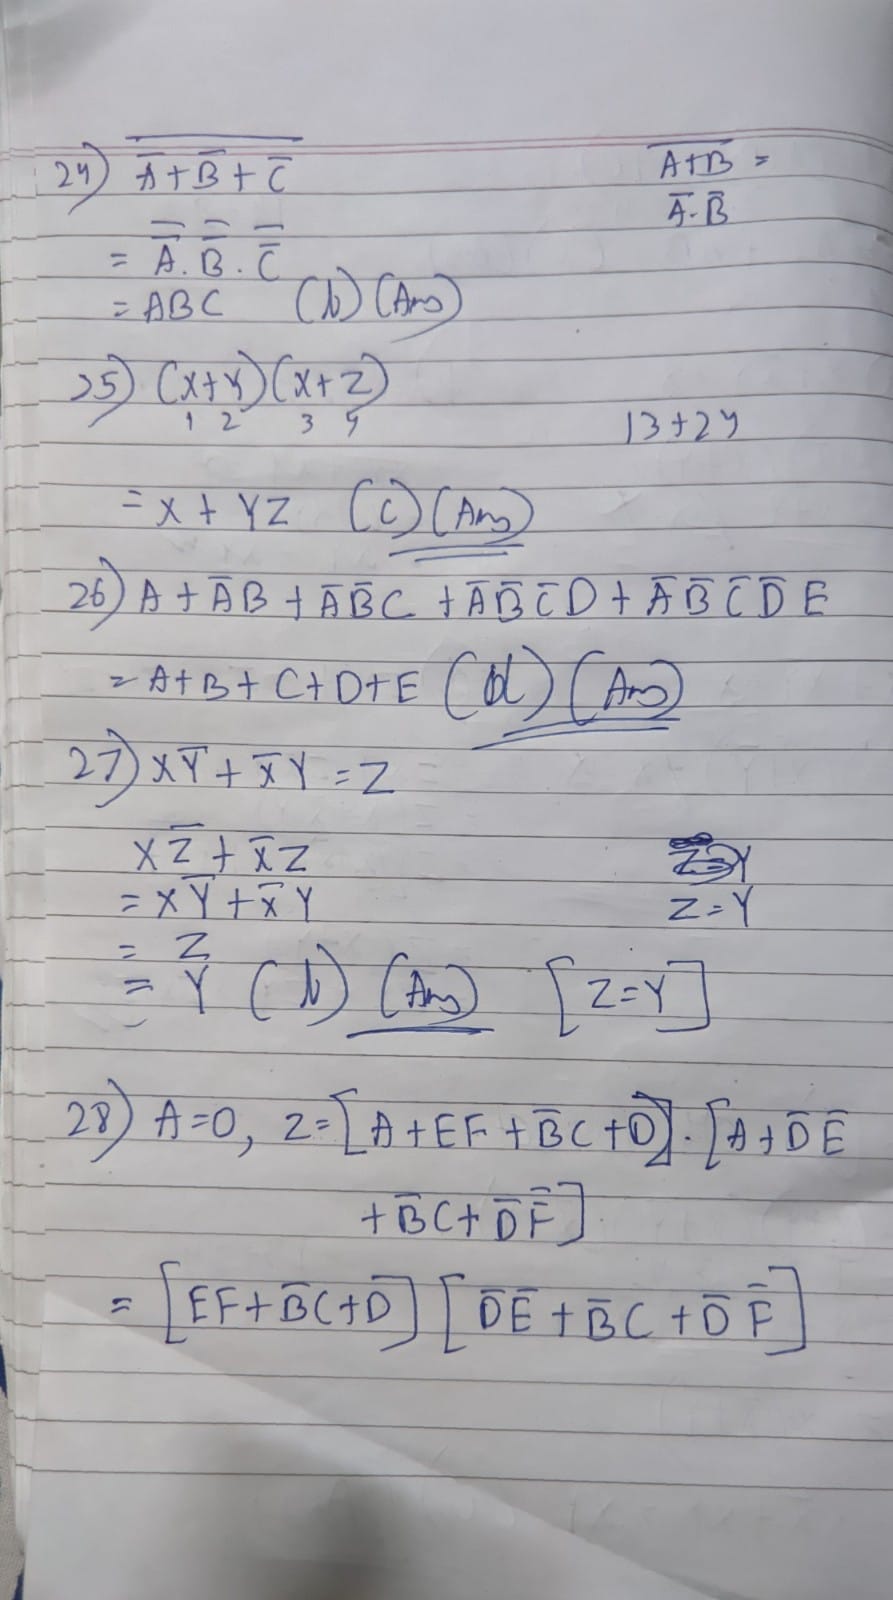 24) \overline{A̅+B̅+C̅}
A+B̅ =
A̅.B̅
= A̿.B̿.C̿
= ABC (b) (Ans)
25) (X+Y)(X+Z)
1 2 3 4
13+24
= X + YZ (C) (Ans)
26) A + A̅B + A̅B̅C + A̅B̅C̅D + A̅B̅C̅D̅E
= A+B+C+D+E (d) (Ans)
27) XY̅ + X̅Y = Z
XZ̅ + X̅Z
= XY̅ + X̅Y
Z=Y
= Z
= Y (b) (Ans) [Z=Y]
28) A=0, Z=[A+EF+B̅C+D].[A+D̅E̅
+B̅C+D̅F̅]
= [EF+B̅C+D][D̅E̅+B̅C+D̅F̅]